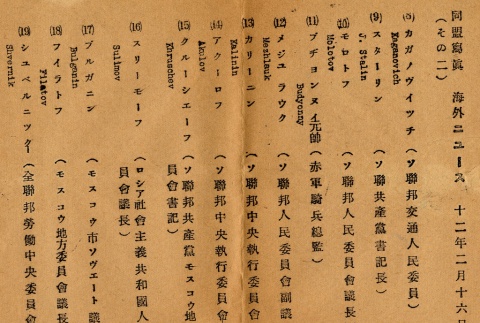 同盟寫眞 海外ニュース 十二年二月十六日
(その二)
(8) カガノヴイツチ (ソ聯邦交通人民委員)
Kaganovich
(9) スターリン (ソ聯共産黨書記長)
J. Stalin
(10) モロトフ (ソ聯邦人民委員會議長
Molotov
(11) ブヂヨンヌイ元帥 (赤軍騎兵總監)
Budyonny
(12) メジユラウク (ソ聯邦人民委員會副議
Mezhlauk
(13) カリーニン (ソ聯邦中央執行委員會
Kalinin
(14) アクーロフ (ソ聯邦中央執行委員會
Akulov
(15) クルーシエーフ (ソ聯邦共産黨モスコウ地
員會書記)
Khruschev
(16) スリーモーフ (ロシア社會主義共和國人
員會議長)
Sulimov
(17) ブルガニン (モスコウ市ソヴエート議
Bulganin
(18) フイラトフ (モスコウ地方委員會議長
Filatov
(19) シユベルニツク (全聯邦勞働中央委員會
Shvernik